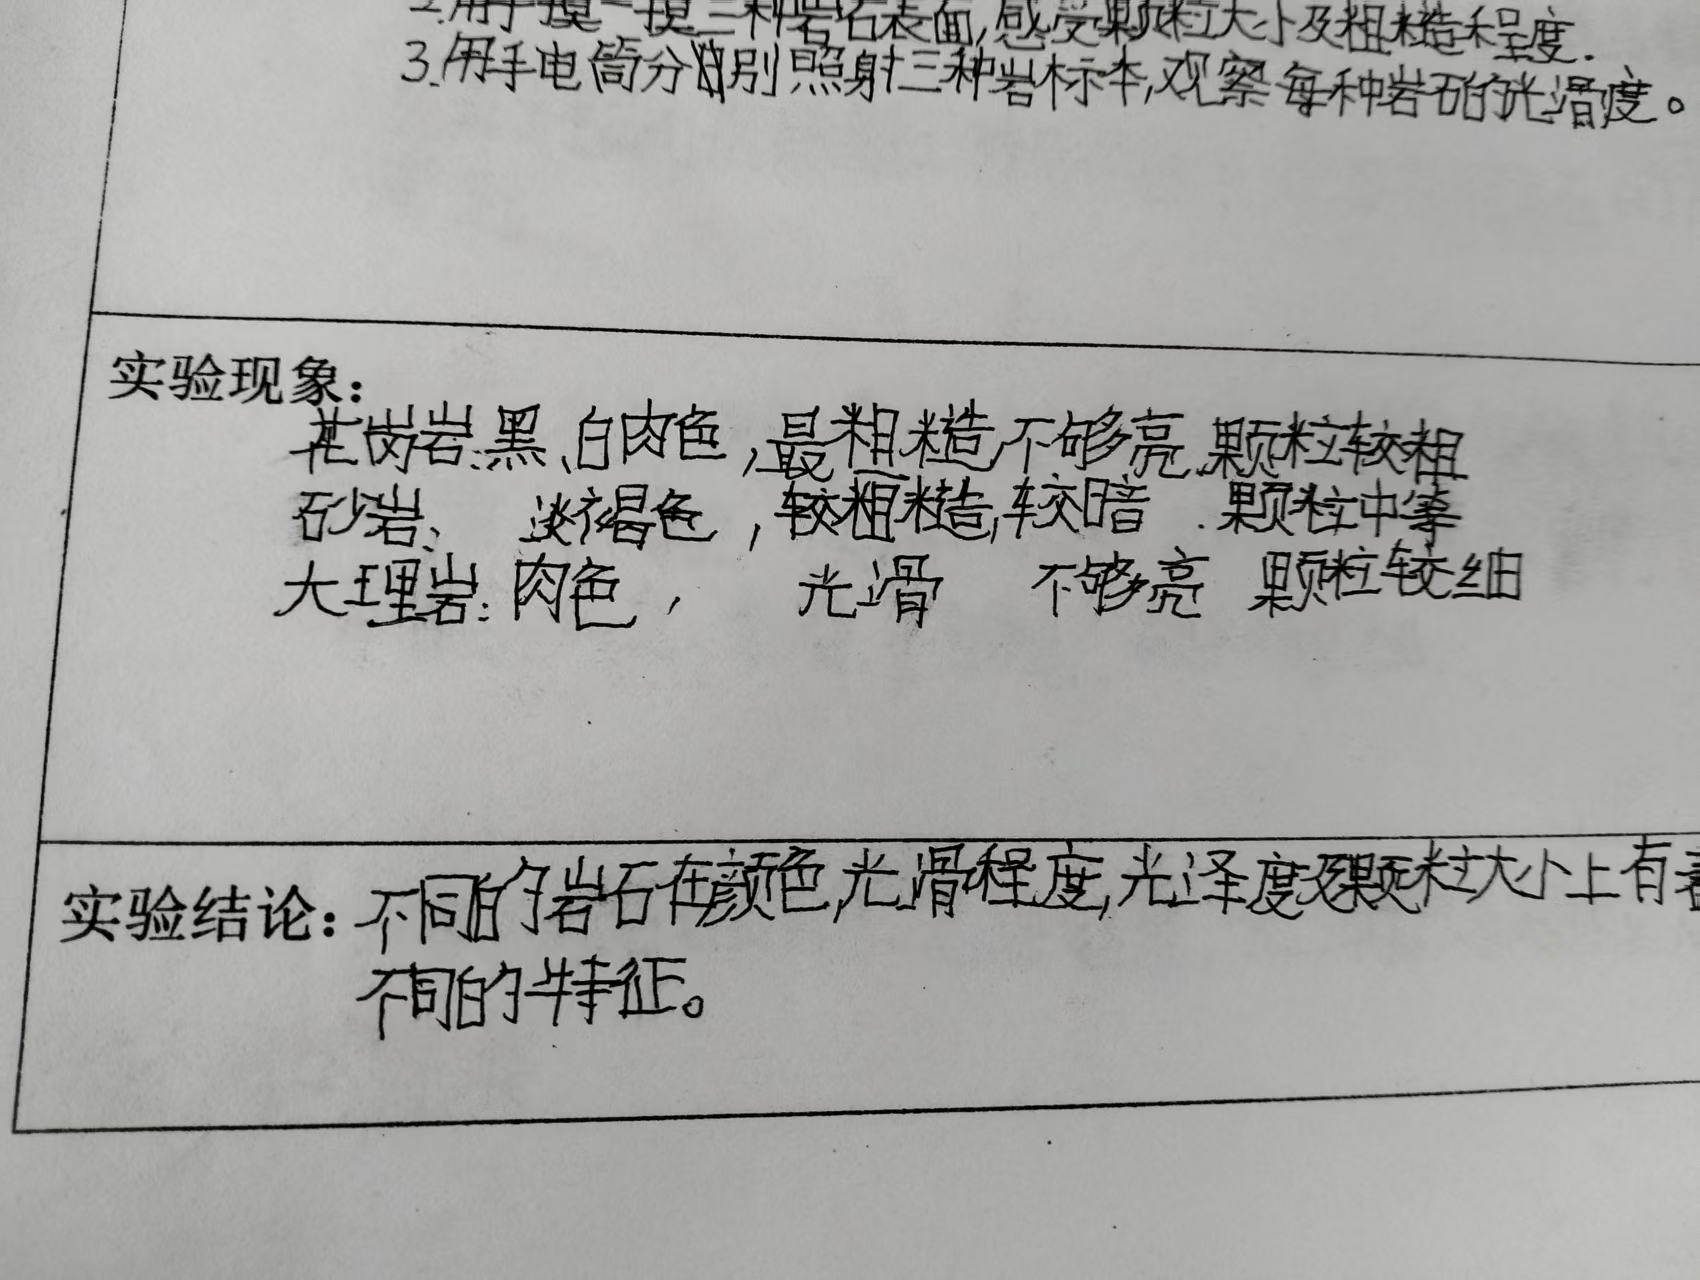 2.用手摸一摸三种岩石表面,感受颗粒大小及粗糙程度.
3.用手电筒分别照射三种岩标本,观察每种岩石的光滑度。
实验现象:
花岗岩:黑、白肉色,最粗糙,不够亮.颗粒较粗
砂岩: 淡褐色,较粗糙,较暗.颗粒中等
大理岩:肉色, 光滑 不够亮 颗粒较细
实验结论:不同的岩石在颜色,光滑程度,光泽度及颗粒大小上有着
不同的特征。